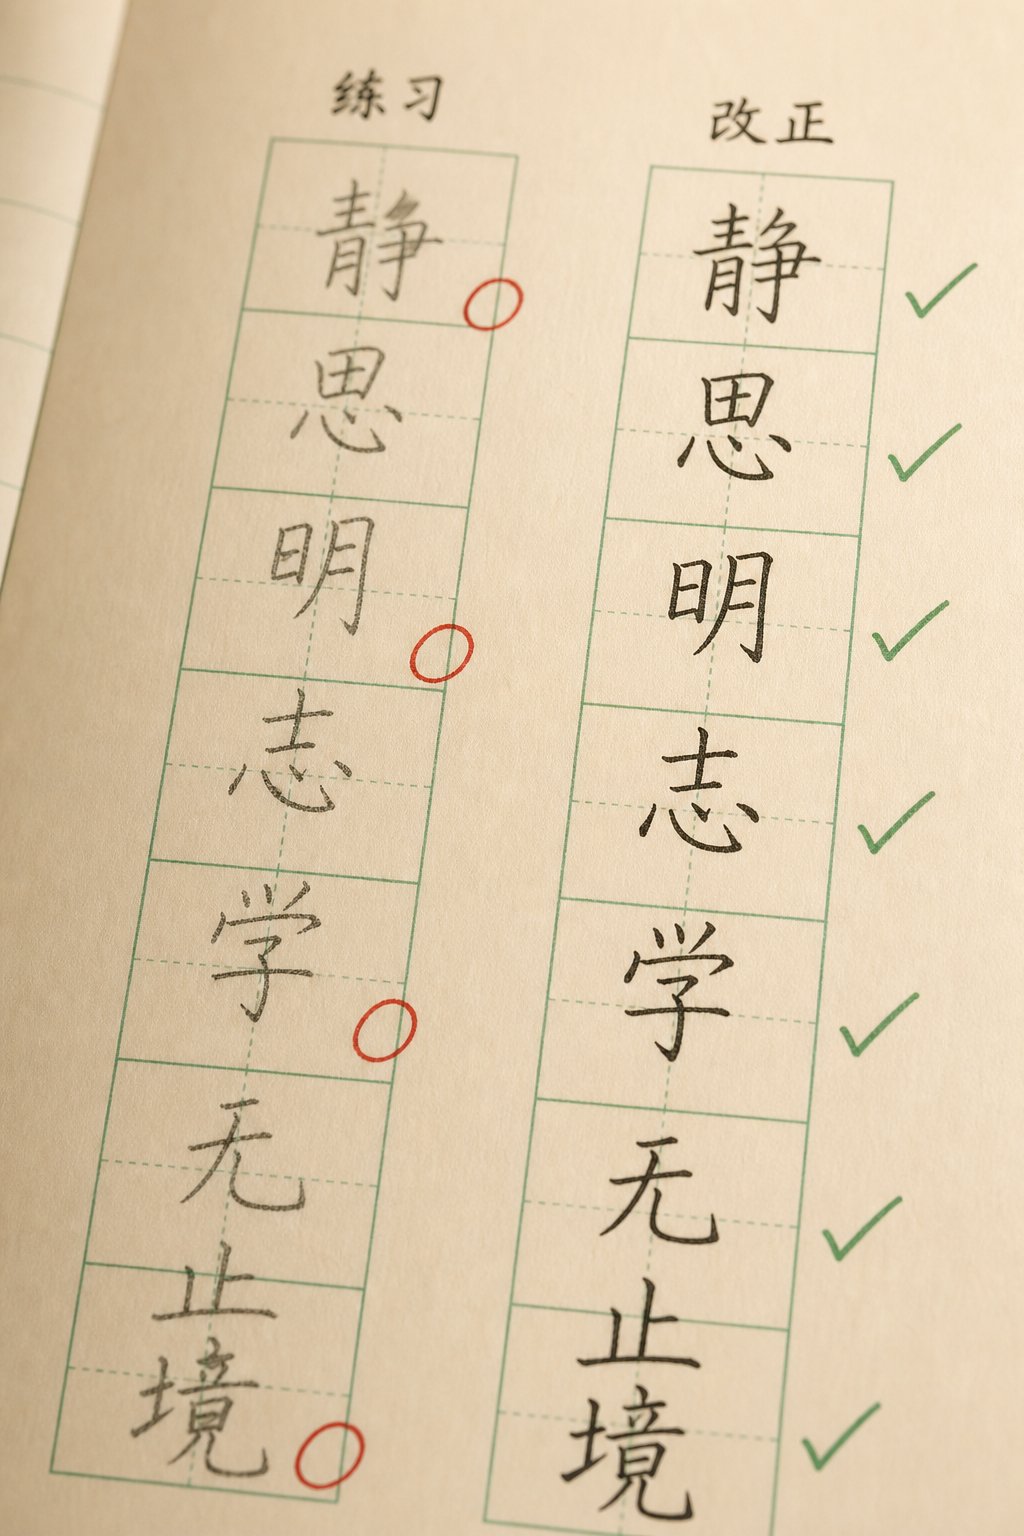 练习
静思明志学无止境
改正
静思明志学无止境